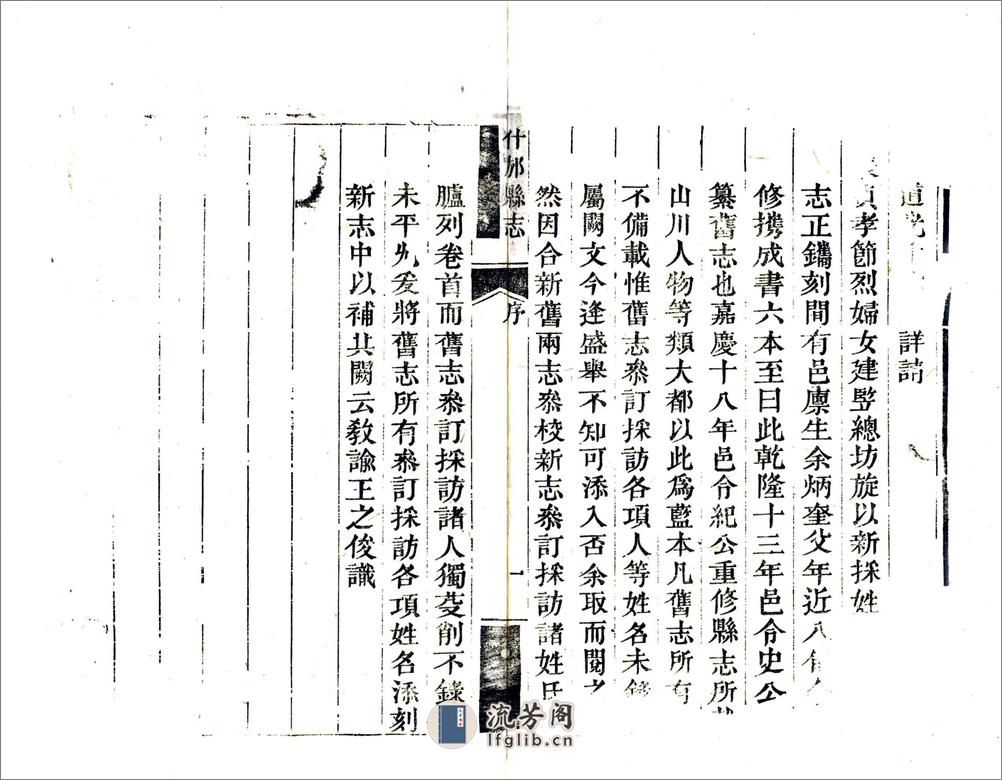 道光 詳請
貞孝節烈婦女建竪總坊旋以新採姓
志正鐫刻間有邑廪生余炳奎父年近八旬
修攜成書六本至曰此乾隆十三年邑令史公
纂舊志也嘉慶十八年邑令紀公重修縣志所
山川人物等類大都以此爲藍本凡舊志所有
不備載惟舊志叅訂採訪各項人等姓名未錄
屬闕文今逢盛舉不知可添入否余取而閱之
然因合新舊兩志叅校新志叅訂採訪諸姓氏
什邡縣志
序
一
臚列卷首而舊志叅訂採訪諸人獨芟削不錄
未平允爰將舊志所有叅訂採訪各項姓名添刻
新志中以補其闕云教諭王之俊識
流芳阁
lfglib.cn